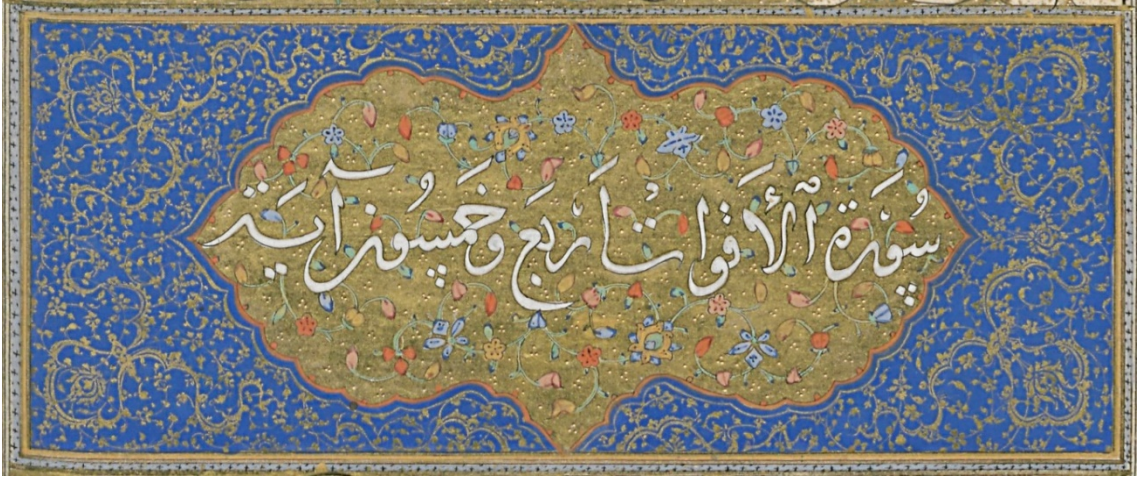 سُورَة الأَقوات اَربَع وَخَمسُون آية